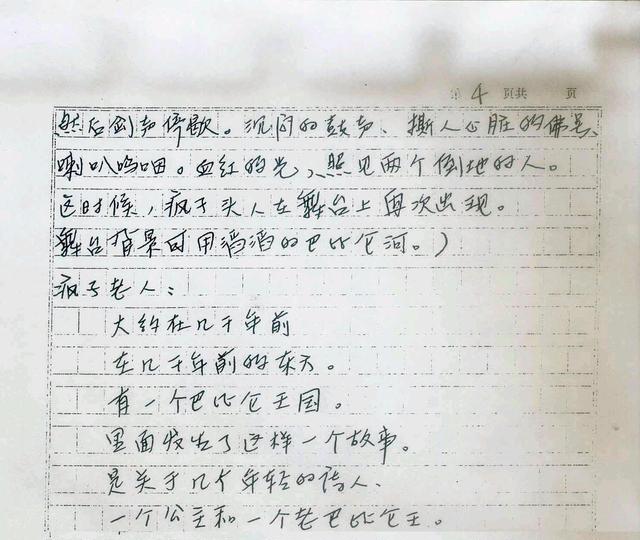 第 4 页共 页
然后剑声停歇。沉闷的鼓声、撕人心脏的佛号、
喇叭呜咽。血红的光,照见两个倒地的人。
这时候,疯子头人在舞台上再次出现。
舞台背景可用滔滔的巴比仑河。)
疯子老人:
大约在几千年前
在几千年前的东方。
有一个巴比仑王国。
里面发生了这样一个故事。
是关于几个年轻的诗人、
一个公主和一个老巴比仑王。